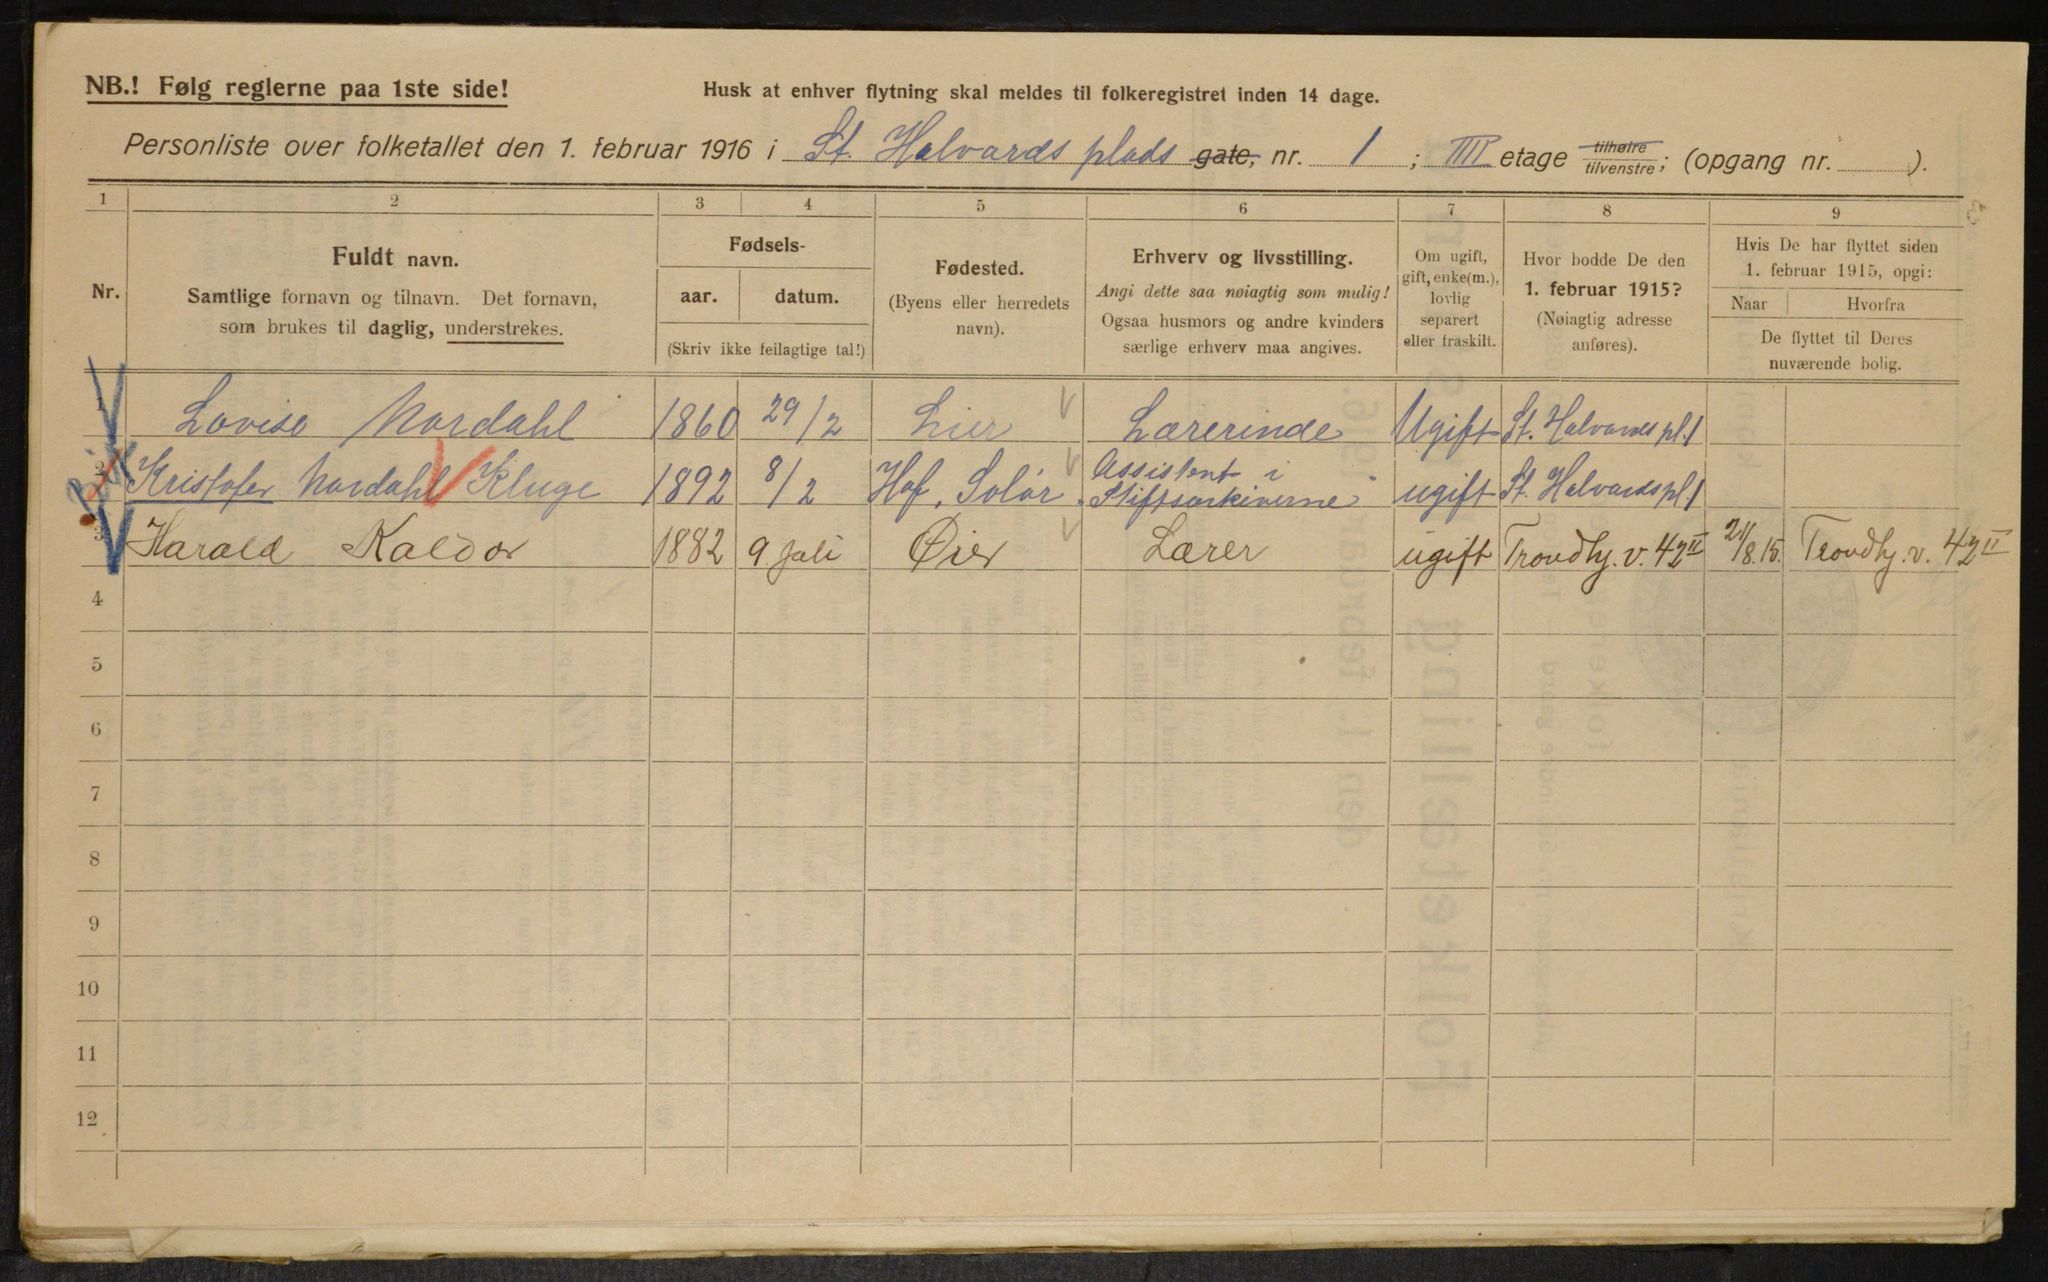 NB.! Følg reglerne paa 1ste side!
Husk at enhver flytning skal meldes til folkeregistret inden 14 dage.
Personliste over folketallet den 1. februar 1916 i St. Halvards plads gate, nr. 1; III etage tilhøire/tilvenstre; (opgang nr. ).
1 2 3 4 5 6 7 8 9
Nr.
Fuldt navn.
Samtlige fornavn og tilnavn. Det fornavn,
som brukes til daglig, understrekes.
Fødsels-
aar. datum.
(Skriv ikke feilagtige tal!)
Fødested.
(Byens eller herredets
navn).
Erhverv og livsstilling.
Angi dette saa nøiagtig som mulig!
Ogsaa husmors og andre kvinders
særlige erhverv maa angives.
Om ugift,
gift, enke(m.),
lovlig
separert
eller fraskilt.
Hvor bodde De den
1. februar 1915?
(Nøiagtig adresse
anføres).
Hvis De har flyttet siden
1. februar 1915, opgi:
Naar Hvorfra
De flyttet til Deres
nuværende bolig.
1 Lovise Nordahl 1860 29/2 Lier Lærerinde Ugift St. Halvards pl. 1
2 Kristofer Nordahl Kluge 1892 8/2 Hof, Solør Assistent i Stiftsarkiverne ugift St. Halvards pl. 1
3 Harald Kaldor 1882 9. juli Øier Lærer ugift Trondhj. v. 42 II 21/8.15. Trondhj. v. 42 II
4
5
6
7
8
9
10
11
12